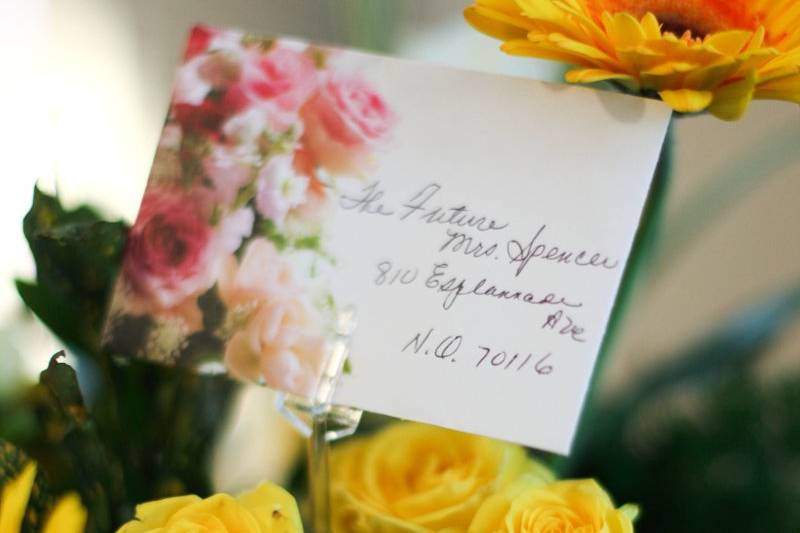 The Future
Mrs. Spencer
810 Esplannade
Ave
N.O. 70116